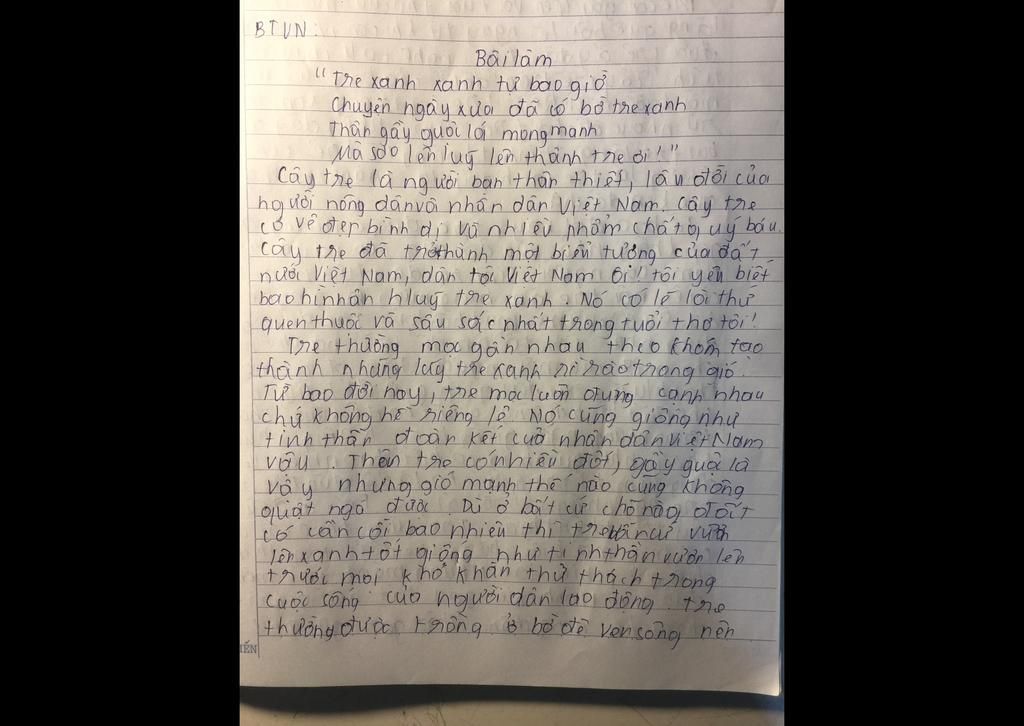 BTVN:
Bài làm
"Tre xanh xanh tự bao giờ
Chuyện ngày xưa đã có bờ tre xanh
Thân gầy guộc lá mong manh
Mà sao lên luỹ lên thành tre ơi!"
Cây tre là người bạn thân thiết, lâu đời của
người nông dân và nhân dân Việt Nam. Cây tre
có vẻ đẹp bình dị và nhiều phẩm chất quý báu.
Cây tre đã trở thành một biểu tượng của đất
nước Việt Nam, dân tộc Việt Nam. Ôi! tôi yêu biết
bao hình ảnh luỹ tre xanh. Nó có lẽ là thứ
quen thuộc và sâu sắc nhất trong tuổi thơ tôi!
Tre thường mọc gần nhau theo khóm tạo
thành những luỹ tre xanh rì rào trong gió.
Từ bao đời nay, tre mọc luôn đứng cạnh nhau
chứ không hề riêng lẻ. Nó cũng giống như
tinh thần đoàn kết của nhân dân Việt Nam
vậy. Thân tre có nhiều đốt, gầy guộc là
vậy nhưng gió mạnh thế nào cũng không
quật ngã được. Dù ở bất cứ chỗ nào, đất
có cằn cỗi bao nhiêu thì tre vẫn cứ vươn
lên xanh tốt giống như tinh thần vươn lên
trước mọi khó khăn thử thách trong
cuộc sống của người dân lao động. tre
thường được trồng ở bờ đê ven sông nên
IẾN